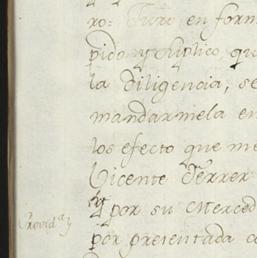 ro: Juro en form
pido y suplico, qu
la diligencia, se
mandarmela en
los efecto que me
Vicente Ferrer
por su Merced
Provid.ª
por presentada